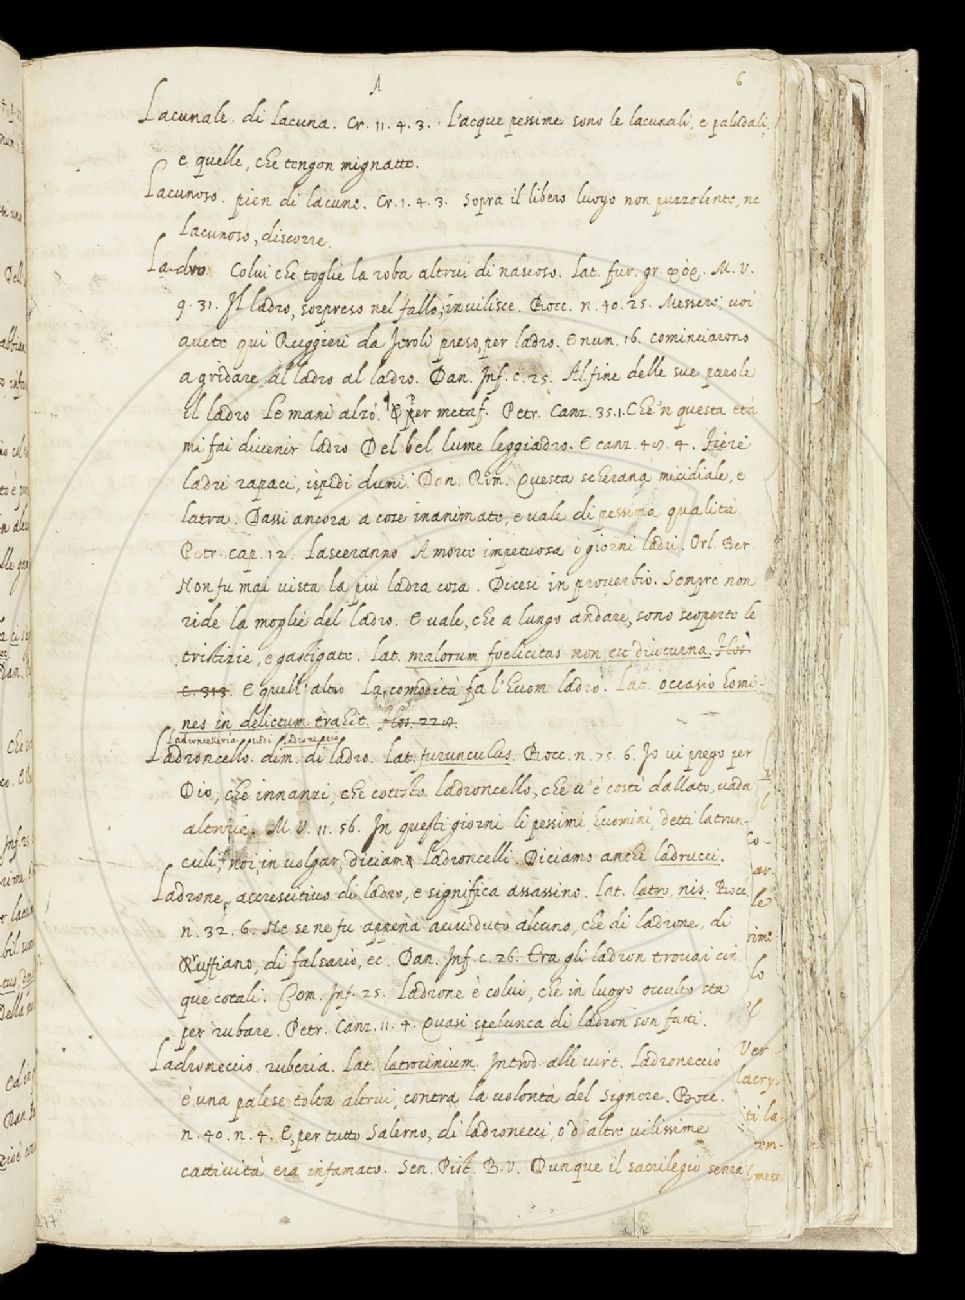 A 6
Lacunale. di lacuna. Cr. 11. 4. 3. L'acque pessime sono le lacunali, e paludali,
e quelle, che tengon mignatte.
Lacunoso. pien di lacune. Cr. 1. 4. 3. Sopra il libero luogo non puzzolente, ne
lacunoso, discorre.
Ladro. Colui che toglie la roba altrui di nascoso. Lat. fur, gr. φὸρ. M. V.
9. 31. Il ladro, sorpreso nel fallo, invilisce. Bocc. n. 40. 25. Messere, voi
avete qui Ruggieri da Jeroli preso per ladro. E num. 16. cominciarono
a gridare, al ladro al ladro. Dan. Inf. c. 25. Al fine delle sue parole
il ladro Le mani alzò. E per metaf. Petr. Canz. 35. 1. Che'n questa età
mi fai divenir ladro Del bel lume leggiadro. E canz. 4. Fiere
ladri rapaci, ispidi dumi. Dan. Rim. Questa scherana micidiale, e
latra. Dassi ancora a cose inanimate, e vale di pessima qualità
Petr. cap. 12. Lasceranno A morte impetuosa i giorni ladri. Orl. Ber
Non fu mai vista la più ladra cosa. Dicesi in proverbio. Sempre non
ride la moglie del ladro. E vale, che a lungo andare, sono scoperte le
tristizie, e gastigate. Lat. malorum foelicitas non est diuturna. Flos
c. 313. E quell'altro La comodità fa l'huom ladro. Lat. occasio homi-
nes in delictum trahit. Flos. 224.
Ladroncelleria vedi ladroneccio
Ladroncello. dim. di ladro. Lat. furunculus. Bocc. n. 75. 6. Io vi prego per
Dio, che innanzi, che cotesto ladroncello, che v'è costì dallato, vada
altrove. M. V. 11. 56. In questi giorni li pessimi huomini, detti latrun-
culi, noi, in volgar, diciamo ladroncelli. Diciamo anche ladrucci.
Ladrone, accrescitivo di ladro, e significa assassino. Lat. latro, nis. Bocc.
n. 32. 6. Ne se ne fu appena avveduto alcuno, che di ladrone, di
Ruffiano, di falsario, ec. Dan. Inf. c. 26. Tra gli ladron trovai cin
que cotali. Com. Inf. 25. Ladrone è colui, che in luogo occulto sta
per rubare. Petr. Canz. 11. 4. Quasi spelunca di ladron son fatti.
Ladroneccio. ruberia. Lat. latrocinium. Introd. alle virt. Ladroneccio
è una palese tolta altrui, contra la volontà del Signore. Bocc.
n. 40. n. 4. E, per tutto Salerno, di ladronecci, o d'altre vilissime
cattività era infamato. Sen. Pist. B. V. Dunque il sacrilegio senza